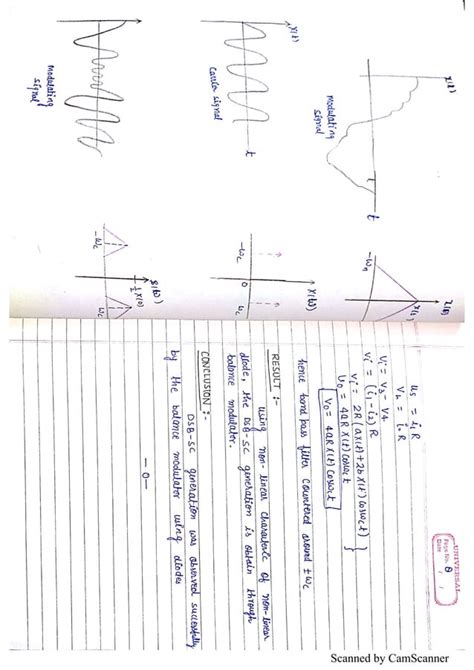 UNIVERSAL
Page No. 8
Date / /
V₃ = i₁R
V₄ = i₂R
Vi = V₃ - V₄
Vi = (i₁ - i₂) R
Vi = 2R (ax(t) + 2b x(t) coswct)
Vo = 4QR x(t) coswct
Vo = 4QR x(t) coswct
hence band pass filter countered around ± wc
RESULT :-
Using non-linear charateric of non-linear
diode, the DSB-SC generation is obtain through
balance modulator.
CONCLUSION :-
DSB-SC generation was observed successfully
by the balance modulator using diodes
— 0 —
x(t)
t
modulating
signal
-wn
X(t)
t
Carrier signal
-wc
0
wc
X(w)
modulating
signal
-wc
wc
½ X(0)
S(w)
Scanned by CamScanner